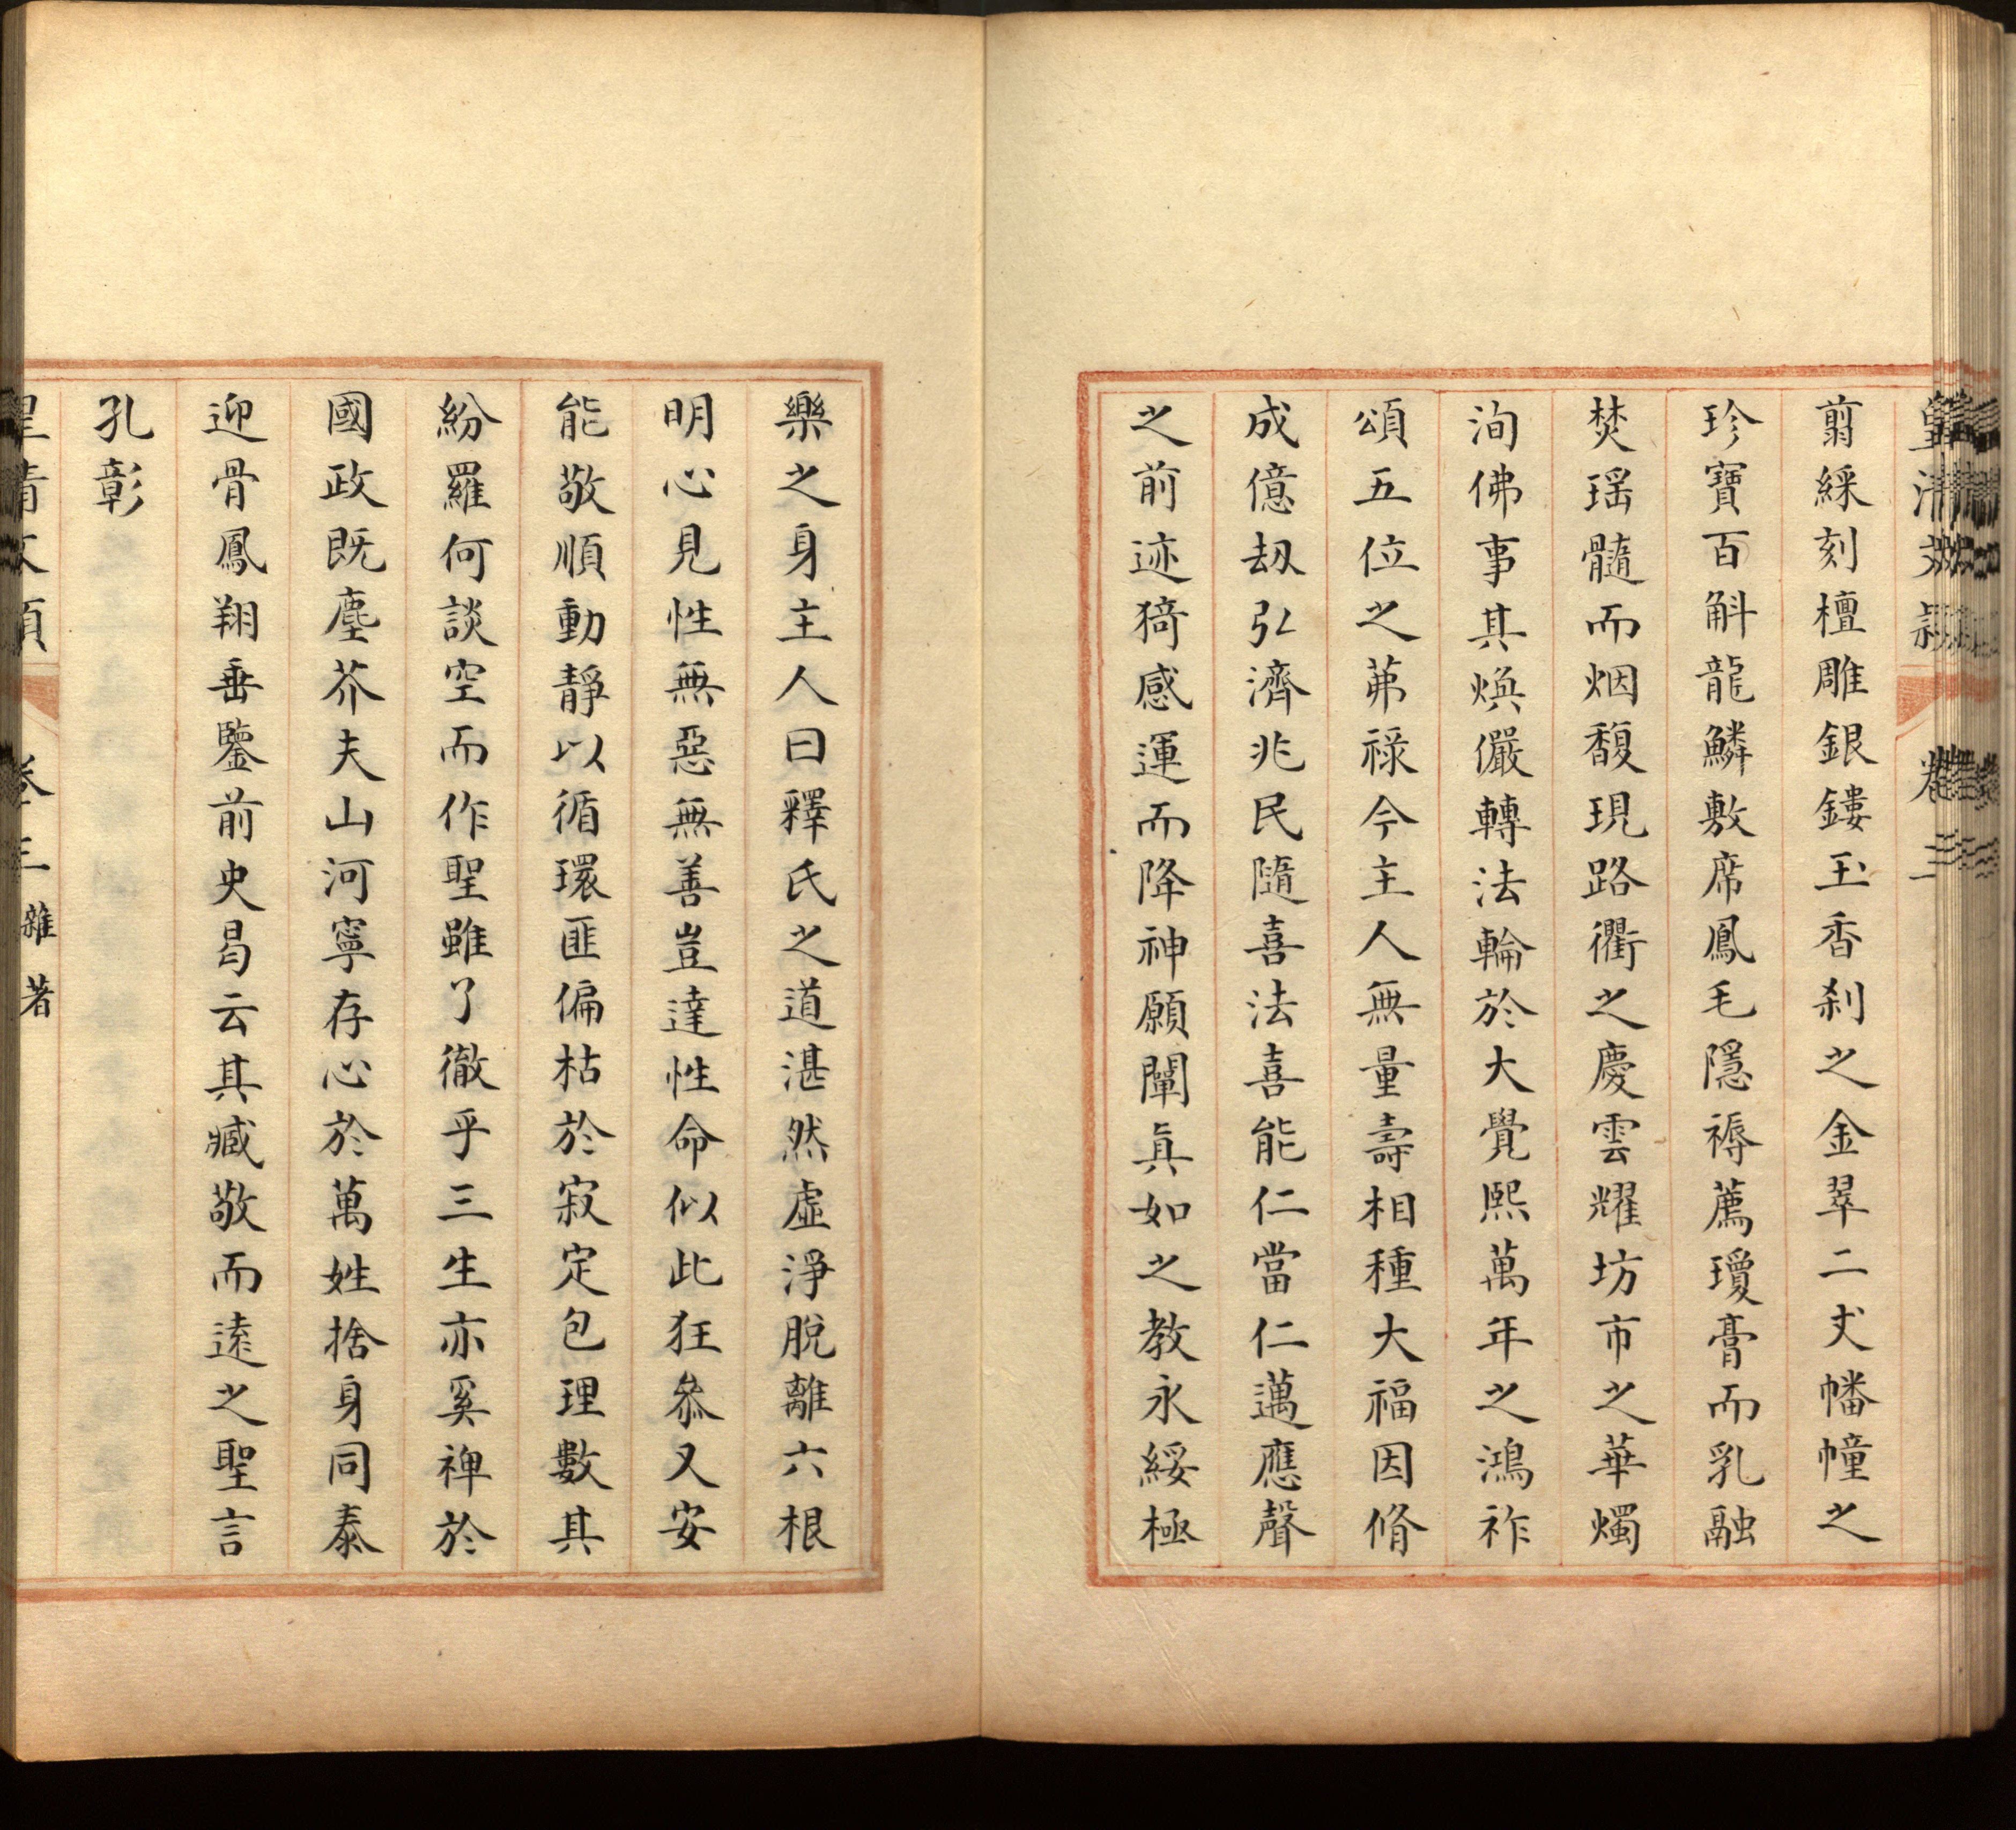 皇清文穎 卷三
翦綵刻檀雕銀鏤玉香刹之金翠二丈幡幢之
珍寶百斛龍鱗敷席鳳毛隱褥薦瓊膏而乳融
焚瑶髓而烟馥現路衢之慶雲耀坊市之華燭
洵佛事其煥儼轉法輪於大覺熙萬年之鴻祚
頌五位之茀祿今主人無量壽相種大福因脩
成億劫弘濟兆民隨喜法喜能仁當仁邁應聲
之前迹猗感運而降神願闡真如之教永綏極
樂之身主人曰釋氏之道湛然虛淨脫離六根
明心見性無惡無善豈達性命似此狂參又安
能敬順動靜以循環匪偏枯於寂定包理數其
紛羅何談空而作聖雖了徹乎三生亦奚裨於
國政既塵芥夫山河寧存心於萬姓捨身同泰
迎骨鳳翔垂鑒前史曷云其臧敬而遠之聖言
孔彰
皇清文穎 卷三 雜著